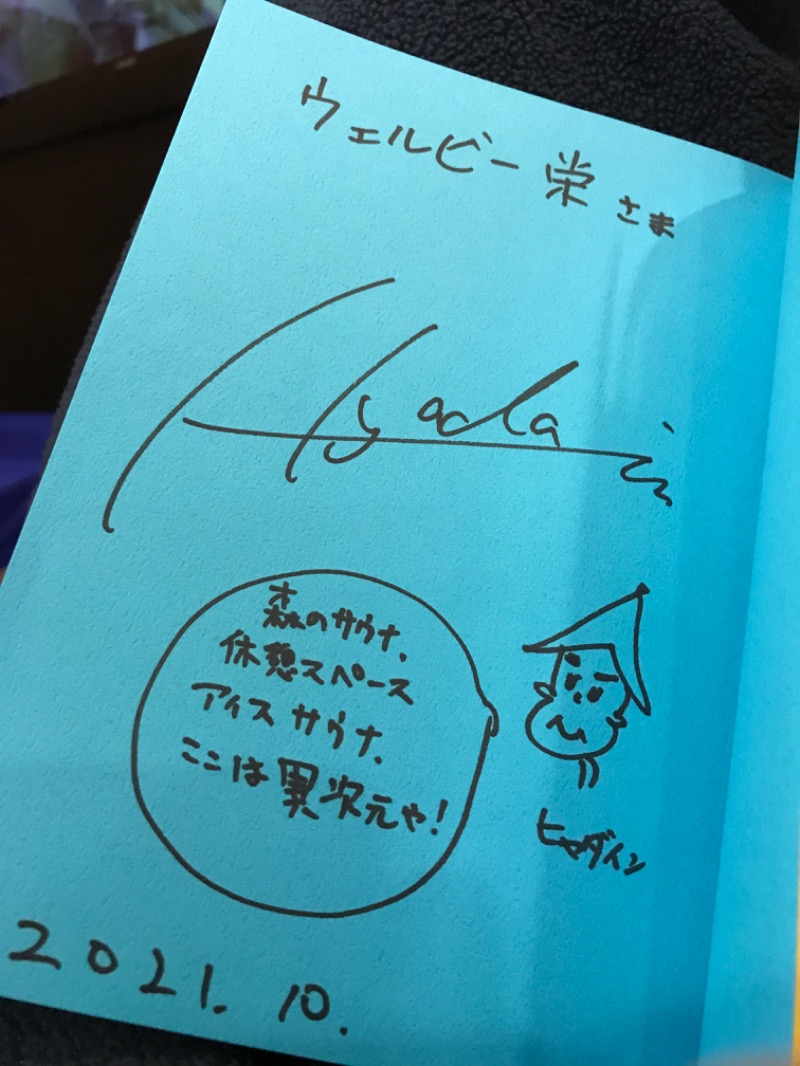 ウェルビー栄さま
Hyadain
森のサウナ、
休憩スペース
アイスサウナ、
ここは異次元や!
ヒャダイン
2021.10.